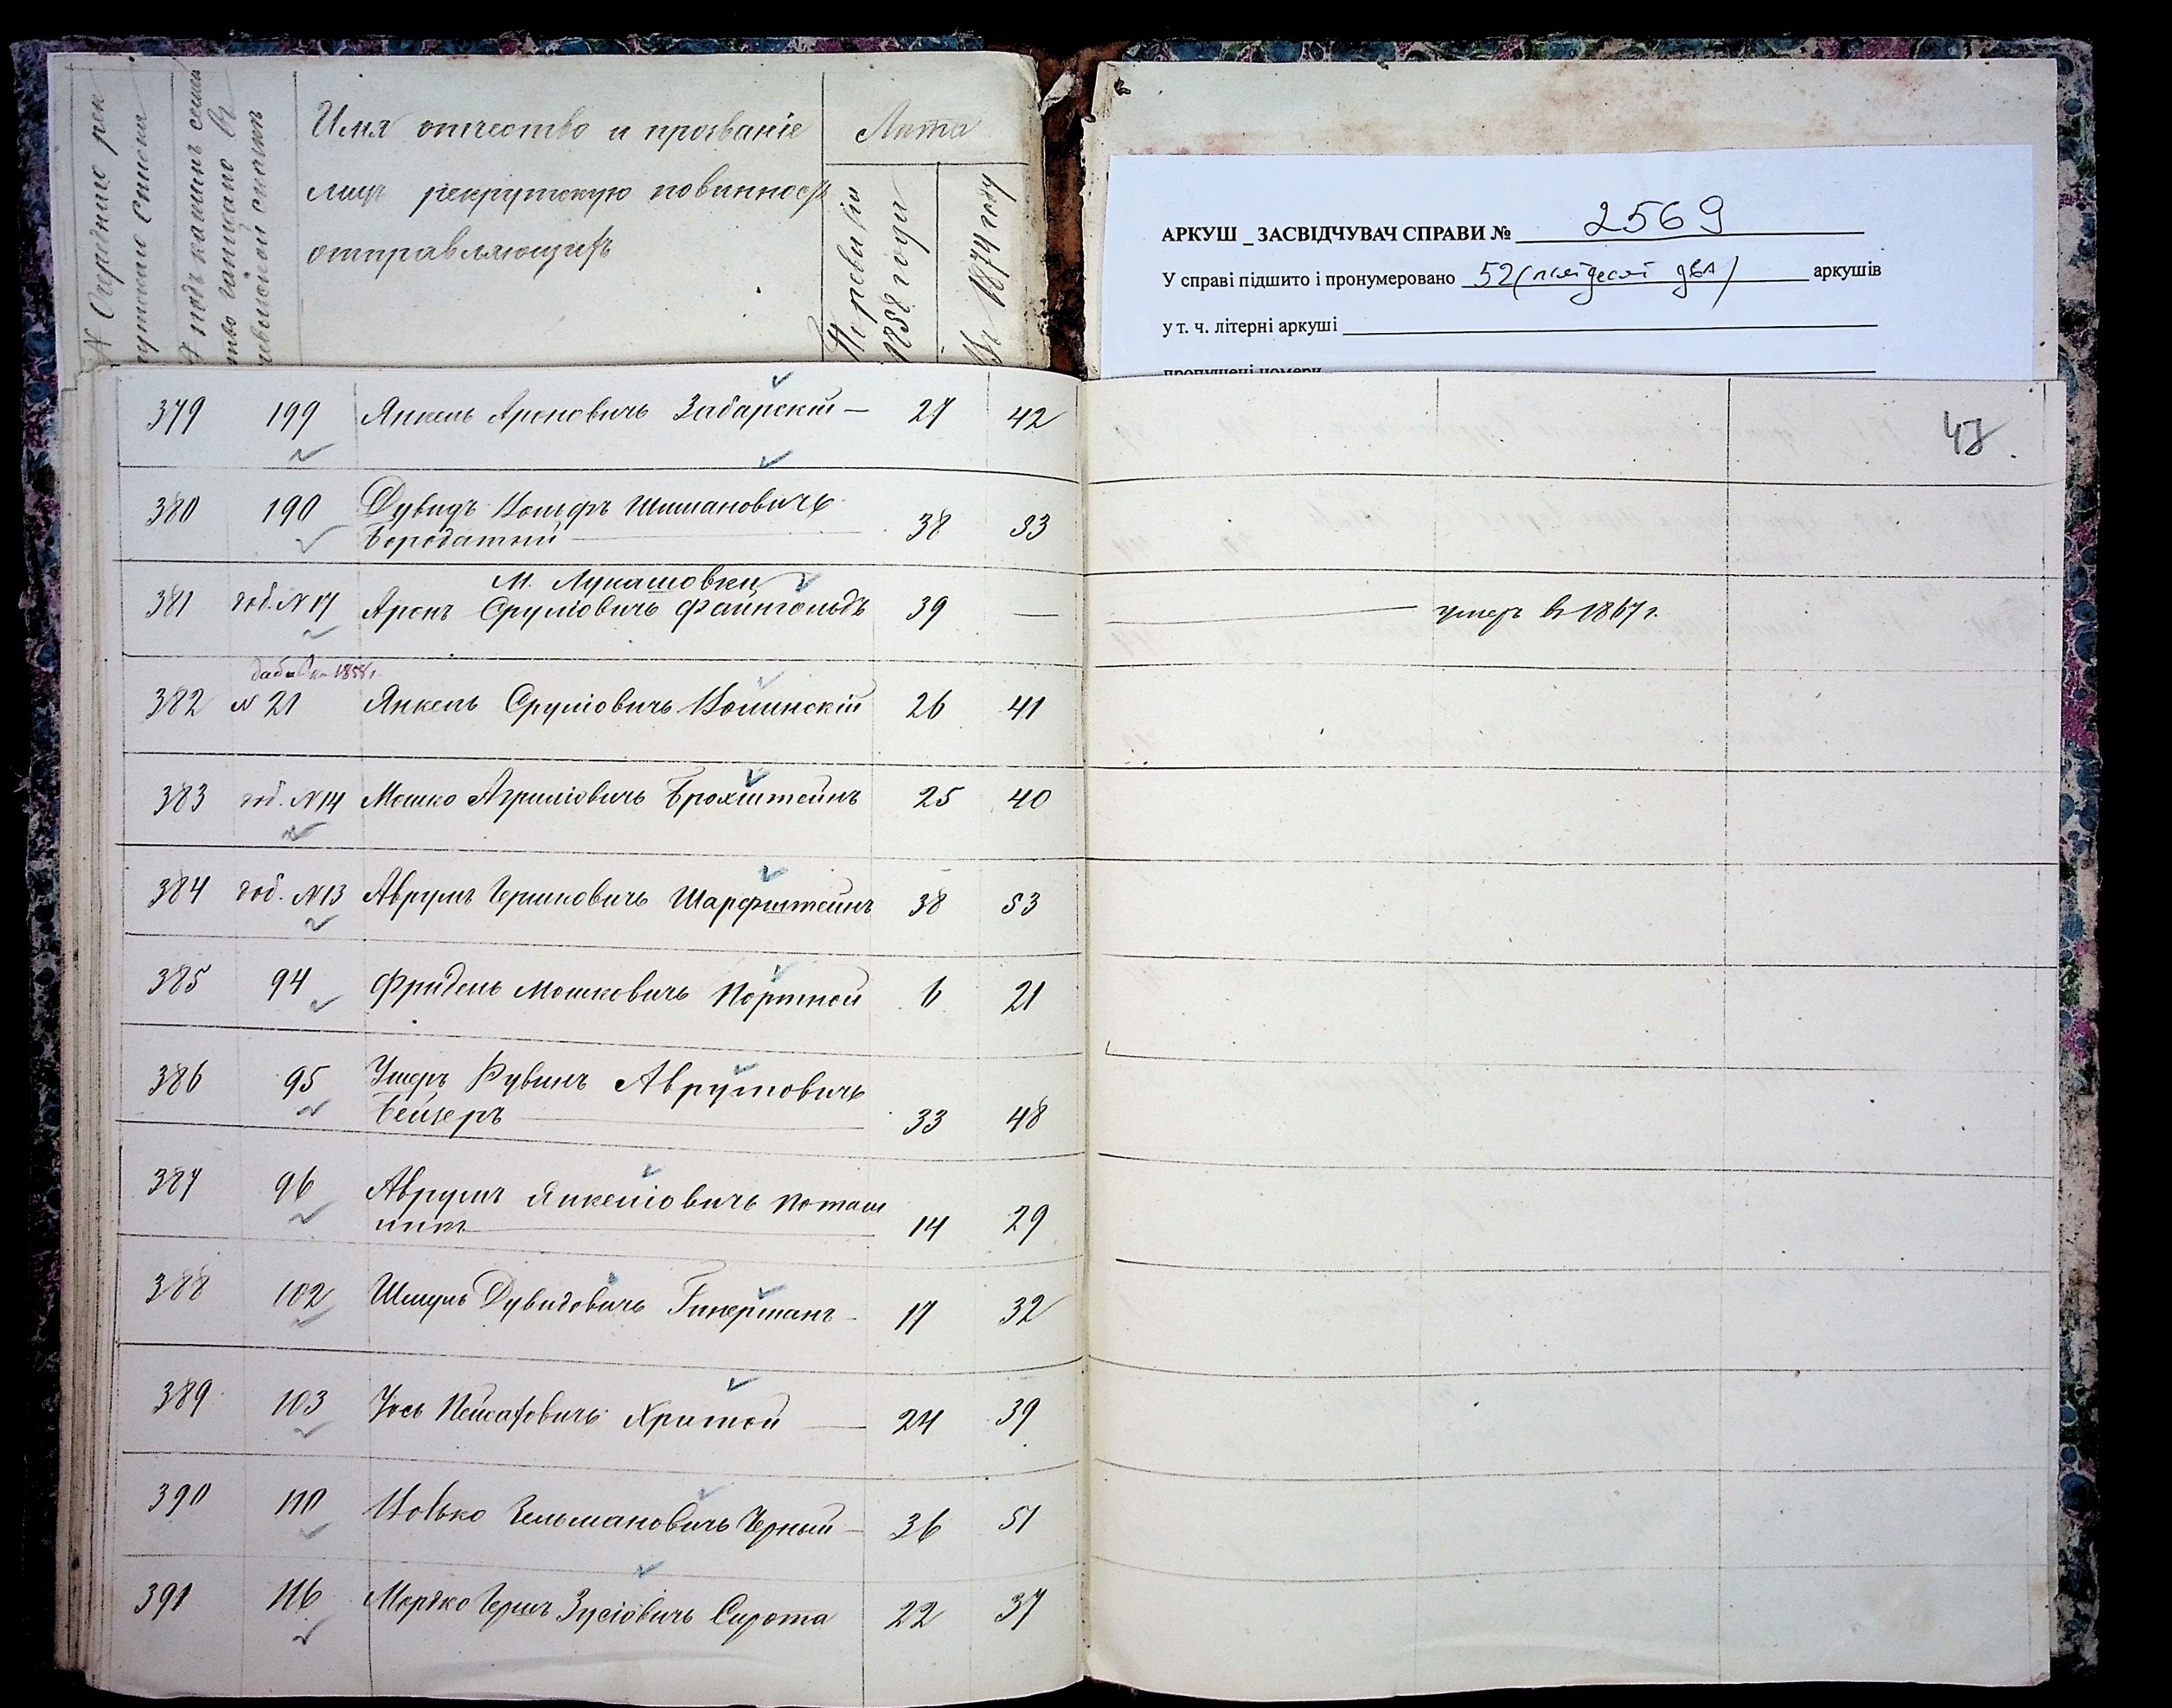 № Очередного рек
рутского списка
№ подъ какимъ семей
ство записано въ
ревизской сказке
Имя отчество и прозваніе
лицъ рекрутскую повинность
отправляющихъ
Лета
По ревизіи
1858 года
Въ 1874 году
АРКУШ _ ЗАСВІДЧУВАЧ СПРАВИ № 2569
У справі підшито і пронумеровано 52 (пятдесят два) аркушів
у т. ч. літерні аркуші
пропущені номери
379 199 Янкель Ароновичъ Забарскій — 27 42
380 190 Дувидъ Вольфъ Шимановичъ
Бородатий 38 53
М. Лукашовки
381 доб. № 17 Аронъ Сруліовичъ Файнгольдъ 39 — умеръ въ 1867 г.
1858 г.
382 № 21 Янкель Сруліовичъ Волинскій 26 41
383 доб. № 14 Мошко Азриліовичъ Бронштейнъ 25 40
384 доб. № 13 Аврумъ Гершковичъ Шарфштейнъ 38 53
385 94 Фридель Мошковичъ Портной 6 21
386 95 Ушеръ Рувинъ Аврумовичъ
Бейзеръ 33 48
387 96 Аврумъ Янкеліовичъ Поташ
никъ 14 29
388 102 Шмуль Дувидовичъ Гикерманъ 17 32
389 103 Іось Пейсаховичъ Хритой 24 39
390 110 Волько Зельмановичъ Черный — 36 51
391 116 Мордко Гершъ Зусіовичъ Сирота 22 37